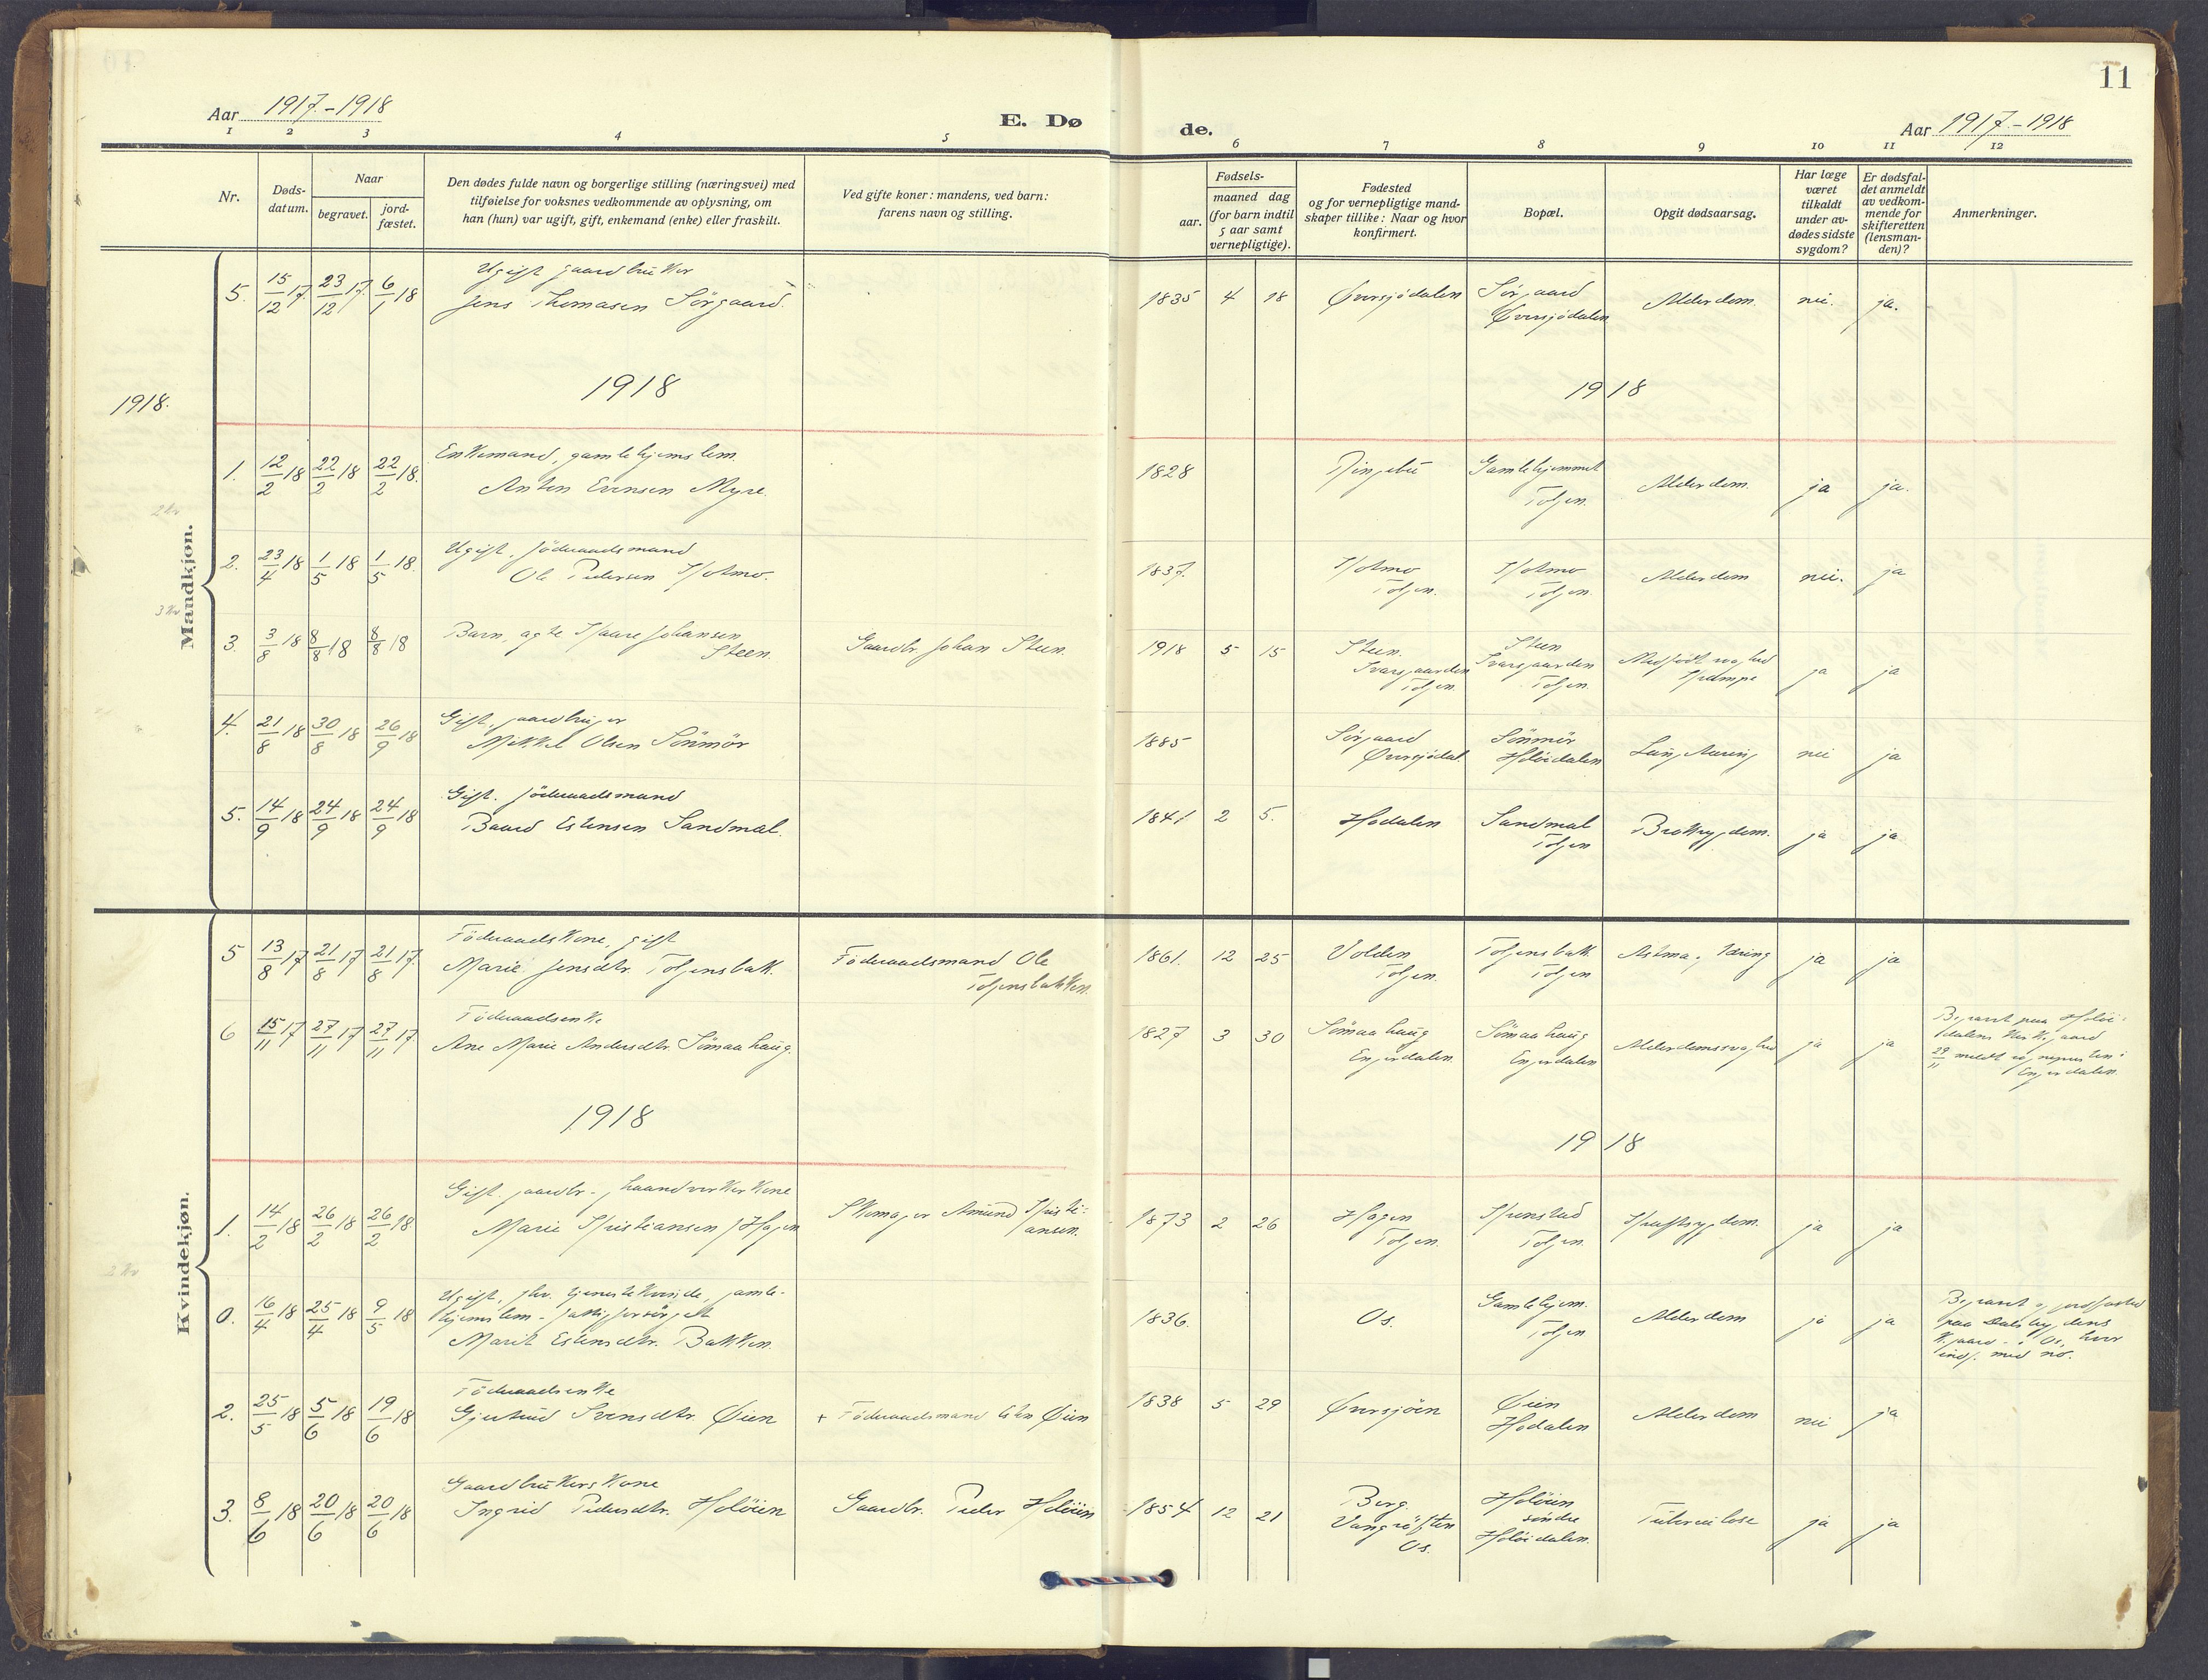 11
Aar 1917.-1918
E. Dø
de.
Aar 1917.-1918
1 2 3 4 5 6 7 8 9 10 11 12
Nr.
Døds-
datum.
Naar
begravet.
jord-
fæstet.
Den dødes fulde navn og borgerlige stilling (næringsvei) med
tilføielse for voksnes vedkommende av oplysning, om
han (hun) var ugift, gift, enkemand (enke) eller fraskilt.
Ved gifte koner: mandens, ved barn:
farens navn og stilling.
Fødsels-
aar.
maaned dag
(for barn indtil
5 aar samt
vernepligtige).
Fødested
og for vernepligtige mand-
skaper tillike: Naar og hvor
konfirmert.
Bopæl.
Opgit dødsaarsag.
Har læge
været
tilkaldt
under av-
dødes sidste
sygdom?
Er dødsfal-
det anmeldt
av vedkom-
mende for
skifteretten
(lensman-
den)?
Anmerkninger.
Mandkjøn.
5. 15/12 17. 23/12 17. 6/1 18
Ugift gaardbruker
Jens Thomasen Sörgaard.
1835 4 18 Øversjödalen
Sörgaard
Øversjödalen
Alderdom. nei. ja.
1918.
1918
1918
1. 12/2 18 22/2 18 22/2 18.
Enkemand, gamlehjemslem.
Anton Evensen Myre.
1828 Ringebu
Gamlehjemmet
Tolgen.
Alderdom. ja ja.
2 Kr
2. 23/4 18 1/5 18 1/5 18.
Ugift, föderaadsmand
Ole Pedersen Kotmo.
1837.
Kotmo
Tolgen.
Kotmo
Tolgen.
Alderdom nei. ja
3 Kr
3. 3/8 18 8/8 18 8/8 18
Barn, ægte Kaare Johansen
Steen.
Gaardbr. Johan Steen.
1918 5 15
Steen.
Tolgen.
Steen
Tolgen.
Medfödt svaghed
Krampe
ja ja
4. 21/8 18 30/8 18 26/9 18
Gift, gaardbruger
Mikkel Olsen Sönmör
1885
Sörgaard
Øversjödal.
Sönmör
Holöidalen
Lungetæring nei ja
5. 14/9 18 24/9 18 24/9 18
Gift. föderaadsmand
Baard Estensen Sandmal.
1841 2 5. Hodalen
Sandmal
Tolgen
Broksygdom. ja ja
Kvindekjøn.
5 13/8 17 21/8 17 21/8 17.
Föderaadskone, gift
Marie Jensdtr. Tolgensbak.
Föderaadsmand Ole
Tolgensbakken.
1861. 12 25
Volden
Tolgen.
Tolgensbak.
Tolgen
Astma, tæring ja ja
6 15/11 17 27/11 17 27/11 17.
Föderaadsenke
Ane Marie Andersdtr. Sömaahaug.
1827 3 30
Sömaahaug
Engerdalen.
Sömaahaug
Engerdalen
Alderdomssvaghed ja ja
Begravet paa Holöi-
dalens kirkegaard
29/11 meldt sognepresten i
Engerdalen.
1918
1918
1. 14/2 18 26/2 18 26/2 18
Gift. gaardbr.- haandverkerkone
Marie Kristiansen f. Hagen
Skomager Amund Kristi-
ansen.
1873 2 26
Hagen
Tolgen.
Tolgen.
Kræftsygdom. ja ja
2 Kr
0. 16/4 18 25/4 18 9/5 18
Ugift, fhv. tjenestekvinde, gamle-
hjemslem - fattigforsörget
Marit Estensdtr. Bakken.
1836. Os.
Gamlehjem.
Tolgen
Alderdom ja ja
Begravet og jordfæstet
paa Dalsbygdens
k.gaard - i Os, hvor
indf. med no.
2. 25/5 18 5/6 18 19/6 18
Föderaadsenke
Gjertrud Svensdtr. Øien
+ Föderaadsmand Esten Øien
1838 5 29 Øversjöen
Øien
Hodalen
Alderdom nei ja
3. 8/6 18 20/6 18 20/6 18
Gaardbrukers kone
Ingrid Pedersdtr. Holöien
Gaardbr. Peder Holöien
1854 12 21
Berg.
Vangröften
Os.
Holöien
söndre
Holöidalen.
Tuberculose ja ja